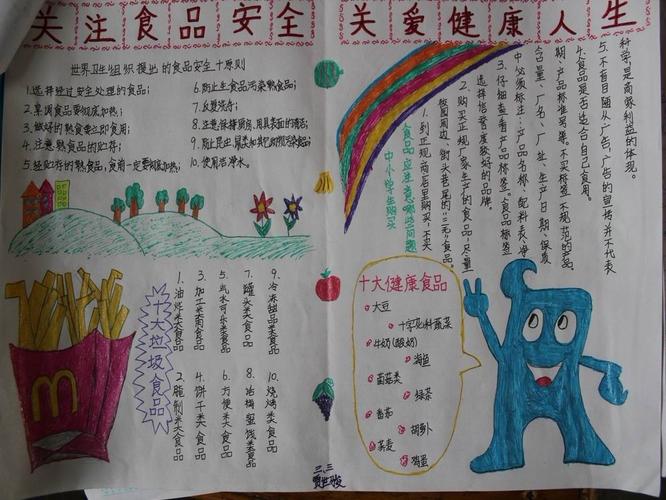 关注食品安全 关爱健康人生
世界卫生组织提出的食品安全十原则
1.选择经过安全处理的食品;
2.烹调食品要彻底加热;
3.做好的熟食要立即食用;
4.注意熟食品的贮存;
5.经贮存的熟食品,食前一定要彻底加热;
6.防止生食品污染熟食品;
7.反复洗手;
8.注意保持厨房用具表面的清洁;
9.防止昆虫、鼠类和其它动物污染食品;
10.使用洁净水。
中小学生购买
食品应注意哪些问题
1.到正规商店里购买,不买
校园周边、街头巷尾的“三无”食品。
2.购买正规厂家生产的食品,尽量
选择信誉度较好的品牌
3.仔细查看产品标签。食品标签
中必须标注:产品名称、配料表、净
含量、厂名、厂址、生产日期、保质
期、产品标准号等。不买标签不规范的产品
4.食品是否适合自己食用。
5.不盲目随从广告,广告的宣传并不代表
科学,是商家利益的体现。
十大垃圾食品
1.油炸类食品
2.腌制类食品
3.加工类肉食品
4.饼干类食品
5.汽水可乐类食品
6.方便类食品
7.罐头类食品
8.话梅蜜饯类食品
9.冷冻甜品类食品
10.烧烤类食品
十大健康食品
大豆
十字花科蔬菜
牛奶(酸奶)
海鱼
菌菇类
绿茶
番茄
胡萝卜
荞麦
鸡蛋
三.三